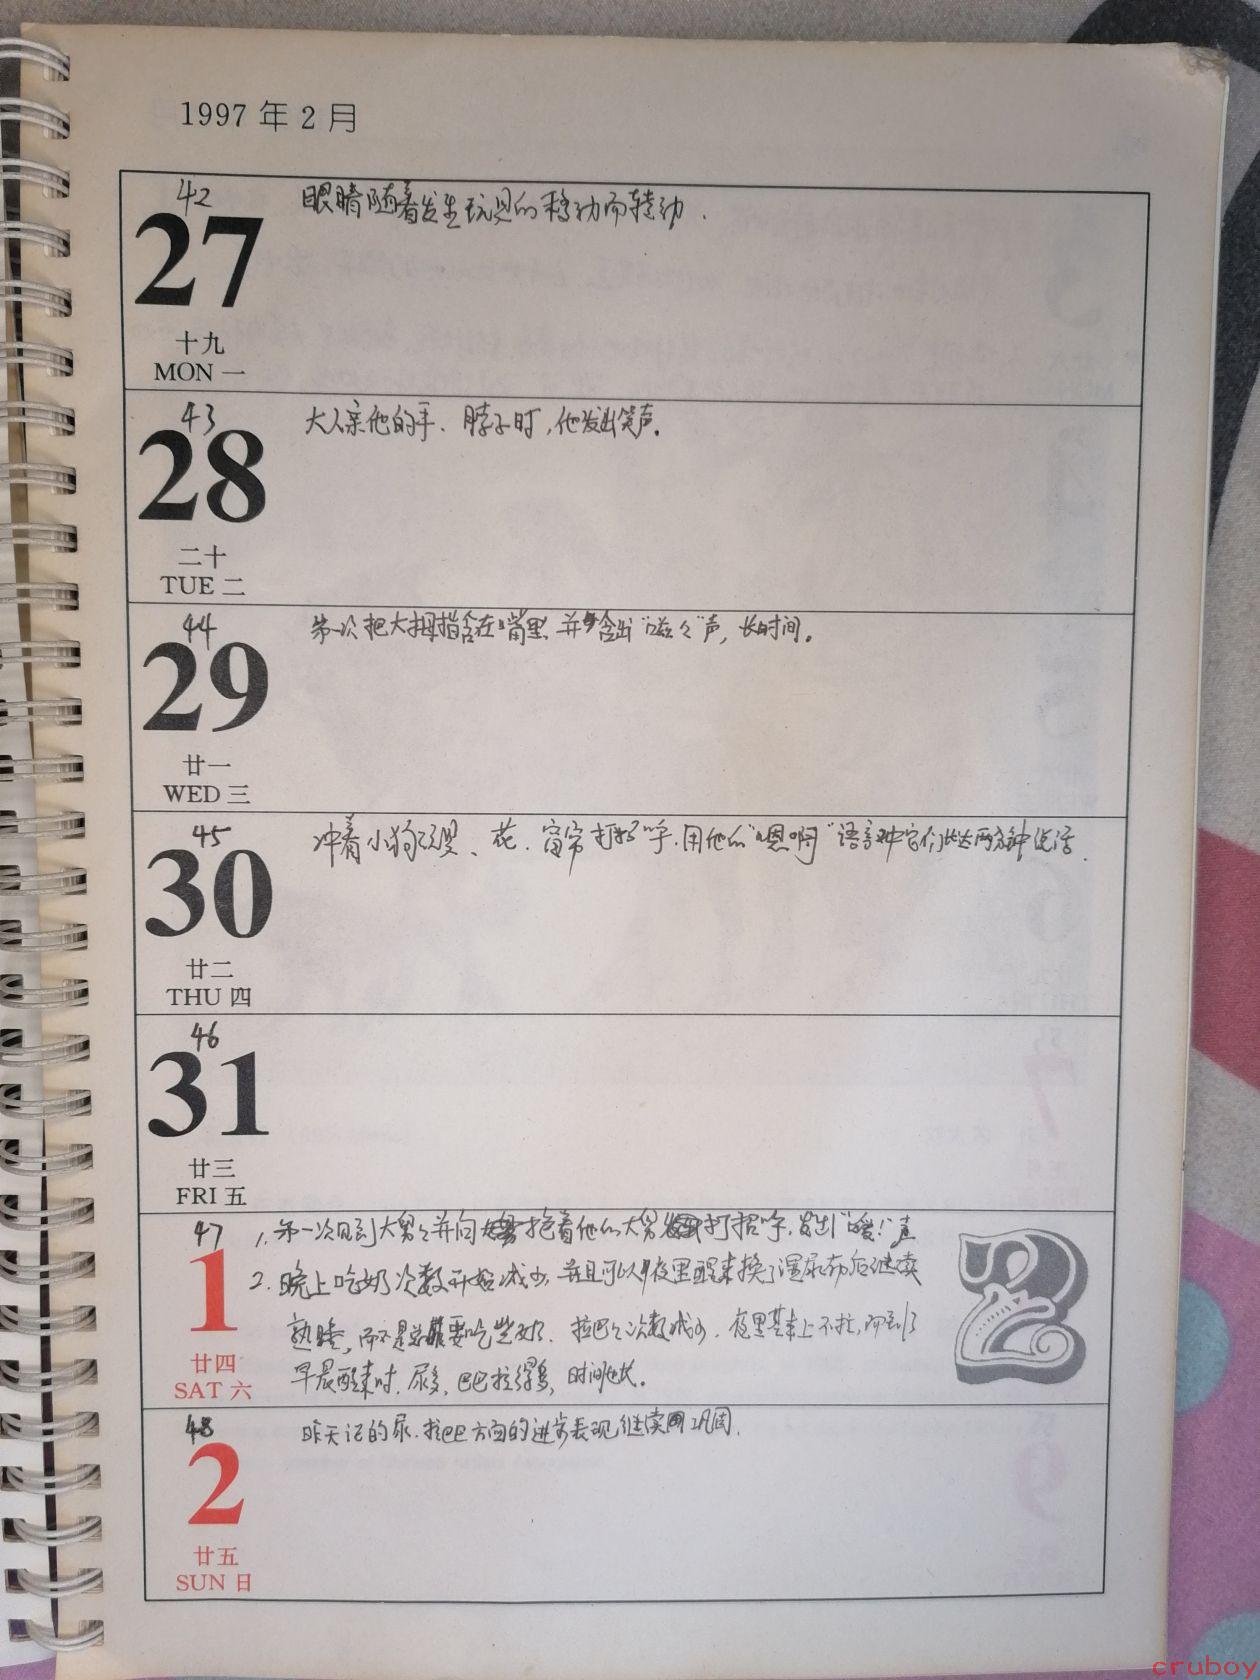 1997年2月
42
27
十九
MON 一
眼睛随着发生玩具的移动而转动.
43
28
二十
TUE 二
大人亲他的手、脖子时,他发出笑声。
44
29
廿一
WED 三
第一次把大拇指含在嘴里,并含出"嗞々"声,长时间。
45
30
廿二
THU 四
冲着小狗玩具、花、窗帘打招呼.用他的"嗯啊"语言冲它们长达两分钟说话.
46
31
廿三
FRI 五
47
1
廿四
SAT 六
1. 第一次见到大舅々并向抱着他的大舅打招呼,发出"嗳!"声
2. 晚上吃奶次数开始减少,并且可以夜里醒来换了湿尿布后继续
熟睡,而不是总要吃些奶了.拉巴々次数减少.夜里基本上不拉,而到了
早晨醒来时,尿多,巴巴拉得多,时间也长。
2
48
2
廿五
SUN 日
昨天记的尿.拉巴巴方面的进步表现继续巩固.
cruboy